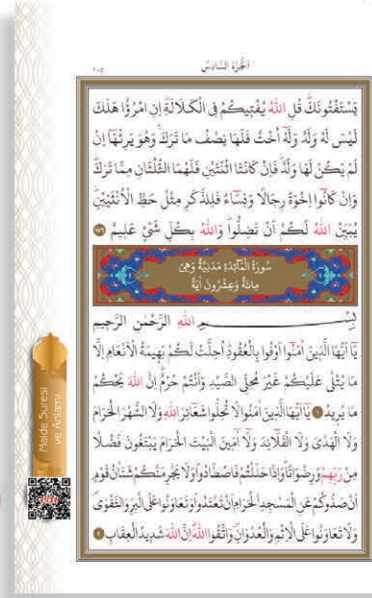 الجزء السادس
١٠٥
يَسْتَفْتُونَكَ قُلِ اللّٰهُ يُفْتِيكُمْ فِي الْكَلَالَةِ اِنِ امْرُؤٌا هَلَكَ
لَيْسَ لَهُ وَلَدٌ وَلَهُ اُخْتٌ فَلَهَا نِصْفُ مَا تَرَكَ وَهُوَ يَرِثُهَا اِنْ
لَمْ يَكُنْ لَهَا وَلَدٌ فَاِنْ كَانَتَا اثْنَتَيْنِ فَلَهُمَا الثُّلُثَانِ مِمَّا تَرَكَ
وَاِنْ كَانُوا اِخْوَةً رِجَالًا وَنِسَاءً فَلِلذَّكَرِ مِثْلُ حَظِّ الْاُنْثَيَيْنِ
يُبَيِّنُ اللّٰهُ لَكُمْ اَنْ تَضِلُّوا وَاللّٰهُ بِكُلِّ شَيْءٍ عَلِيمٌ ١٧٦
سُورَةُ الْمَائِدَةِ مَدَنِيَّةٌ وَهِيَ
مِائَةٌ وَعِشْرُونَ اٰيَةً
بِسْمِ اللّٰهِ الرَّحْمٰنِ الرَّحِيمِ
يَا اَيُّهَا الَّذِينَ اٰمَنُوا اَوْفُوا بِالْعُقُودِ اُحِلَّتْ لَكُمْ بَهِيمَةُ الْاَنْعَامِ اِلَّا
مَا يُتْلٰى عَلَيْكُمْ غَيْرَ مُحِلِّي الصَّيْدِ وَاَنْتُمْ حُرُمٌ اِنَّ اللّٰهَ يَحْكُمُ
مَا يُرِيدُ ١ يَا اَيُّهَا الَّذِينَ اٰمَنُوا لَا تُحِلُّوا شَعَائِرَ اللّٰهِ وَلَا الشَّهْرَ الْحَرَامَ
وَلَا الْهَدْيَ وَلَا الْقَلَائِدَ وَلَا اٰمِّينَ الْبَيْتَ الْحَرَامَ يَبْتَغُونَ فَضْلًا
مِنْ رَبِّهِمْ وَرِضْوَانًا وَاِذَا حَلَلْتُمْ فَاصْطَادُوا وَلَا يَجْرِمَنَّكُمْ شَنَاٰنُ قَوْمٍ
اَنْ صَدُّوكُمْ عَنِ الْمَسْجِدِ الْحَرَامِ اَنْ تَعْتَدُوا وَتَعَاوَنُوا عَلَى الْبِرِّ وَالتَّقْوٰى
وَلَا تَعَاوَنُوا عَلَى الْاِثْمِ وَالْعُدْوَانِ وَاتَّقُوا اللّٰهَ اِنَّ اللّٰهَ شَدِيدُ الْعِقَابِ ٢
Maide Suresi
ve Anlamı